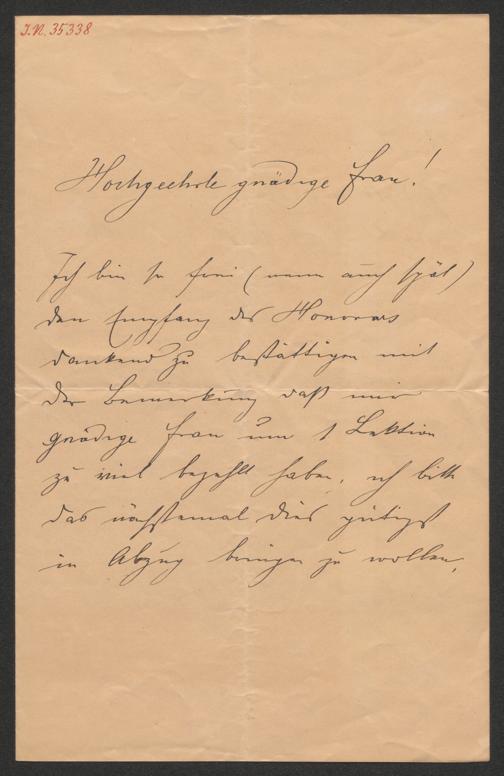 I.N. 35338
Hochgeehrte gnädige Frau!
Ich bin so frei (wenn auch spät)
den Empfang des Honorars
dankend zu bestättigen mit
der Bemerkung daß mir
gnädige Frau um 1 Lektion
zu viel bezahlt haben, ich bitte
das nächstemal dies gütigst
in Abzug bringen zu wollen,